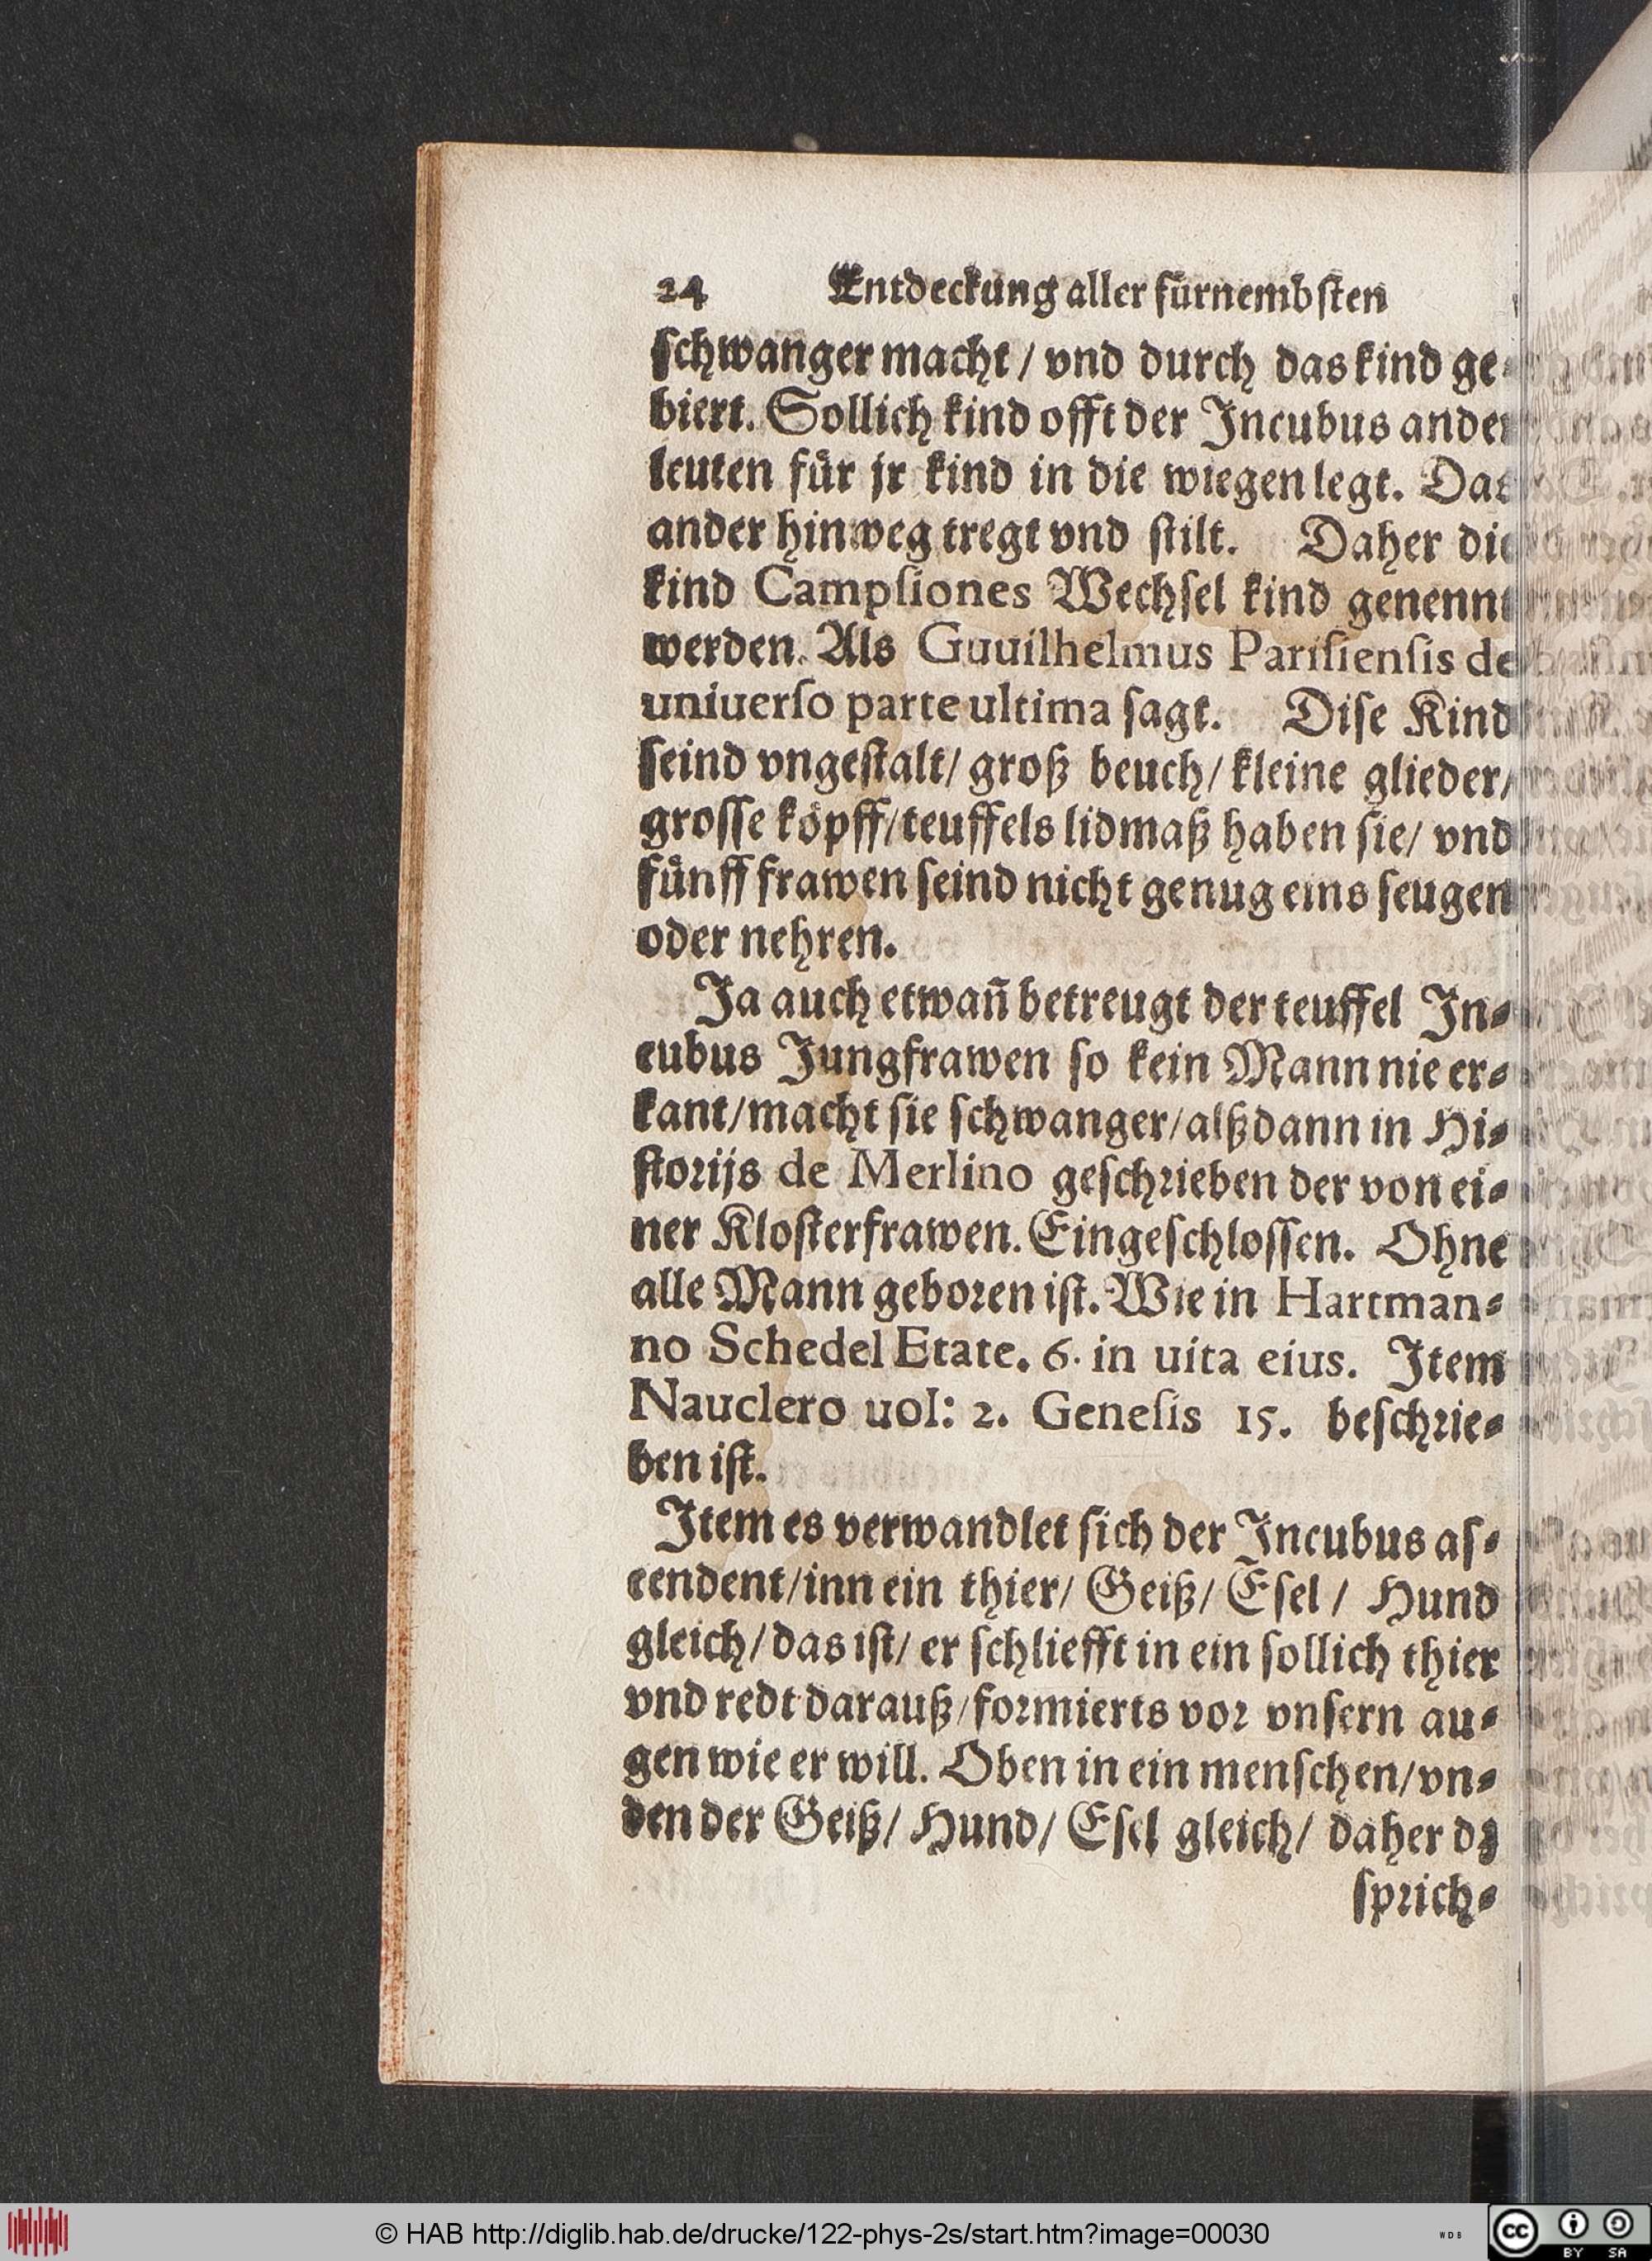 24 Entdeckung aller fürnembſten
ſchwanger macht / vnd durch das kind ge⸗
biert. Sollich kind offt der Incubus ander
leuten fuͤr jr kind in die wiegen legt. Das
ander hinweg tregt vnd ſtilt. Daher die
kind Campſiones Wechſel kind genennt
werden. Als Guuilhelmus Pariſienſis de
uniuerſo parte ultima ſagt. Diſe Kind
ſeind vngeſtalt/ groß beuch/ kleine glieder/
groſſe koͤpff/ teuffels lidmaß haben ſie/ vnd
fuͤnff frawen ſeind nicht genug eins ſeugen
oder nehren.
Ja auch etwañ betreugt der teuffel In⸗
cubus Jungfrawen ſo kein Mann nie er⸗
kant/macht ſie ſchwanger/alßdann in Hi⸗
ſtorijs de Merlino geſchrieben der von ei⸗
ner Kloſterfrawen. Eingeſchloſſen. Ohne
alle Mann geboren iſt. Wie in Hartman⸗
no Schedel Etate. 6. in uita eius. Item
Nauclero uol: 2. Geneſis 15. beſchrie⸗
ben iſt.
Item es verwandlet ſich der Incubus aſ⸗
cendent/inn ein thier/ Geiß/ Eſel / Hund
gleich/ das iſt/ er ſchliefft in ein ſollich thier
vnd redt darauß/formierts vor vnſern au⸗
gen wie er will. Oben in ein menſchen/vn⸗
den der Geiß/ Hund/ Eſel gleich/ daher dz
ſprich⸗
© HAB http://diglib.hab.de/drucke/122-phys-2s/start.htm?image=00030
WDB
cc BY SA